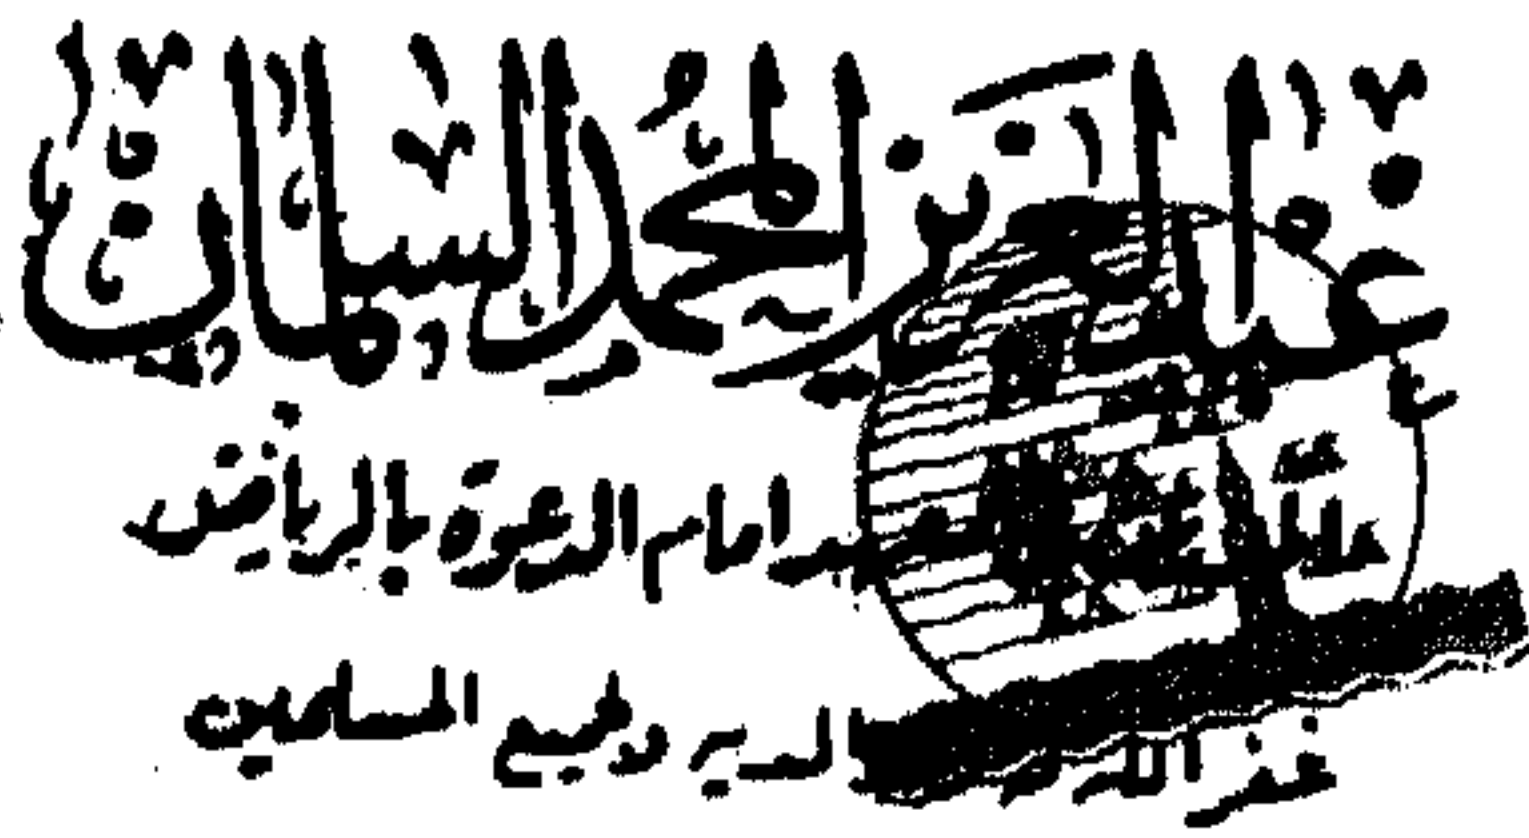 عبد العزيز المحمد السلمان
معهد امام الدعوة بالرياض
غفر الله له ولوالديه ولجميع المسلمين